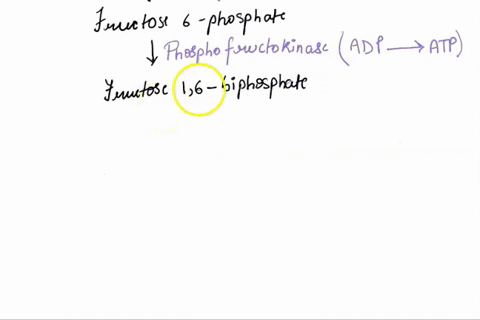 Fructose 6-phosphate
↓ Phosphofructokinase (ADP → ATP)
Fructose 1,6-biphosphate